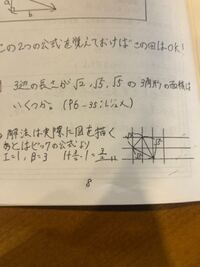 a
b
この2つの公式を覚えておけばこの回はOK!
3辺の長さが√2, √5, √5 の3角形の面積は
いくつか。
解法は実際に図を描く
あとはピックの公式より
I=1, B=3 1+3/2-1=3/2
8